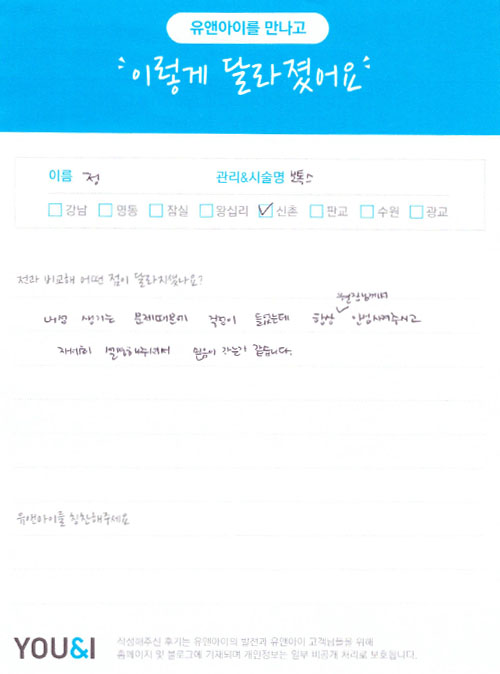 유앤아이를 만나고
이렇게 달라졌어요
이름 정 관리&시술명 보톡스
강남 명동 잠실 왕십리 신촌 판교 수원 광교
전과 비교해 어떤 점이 달라지셨나요?
생기는 문제때문에 걱정이 들었는데 항상 안심시켜주시고
자세히 설명해주셔서 믿음이 가는거 같습니다.
유앤아이를 칭찬해주세요
YOU&I
작성해주신 후기는 유앤아이의 발전과 유앤아이 고객님들을 위해
홈페이지 및 블로그에 기재되며 개인정보는 일부 비공개 처리로 보호됩니다.